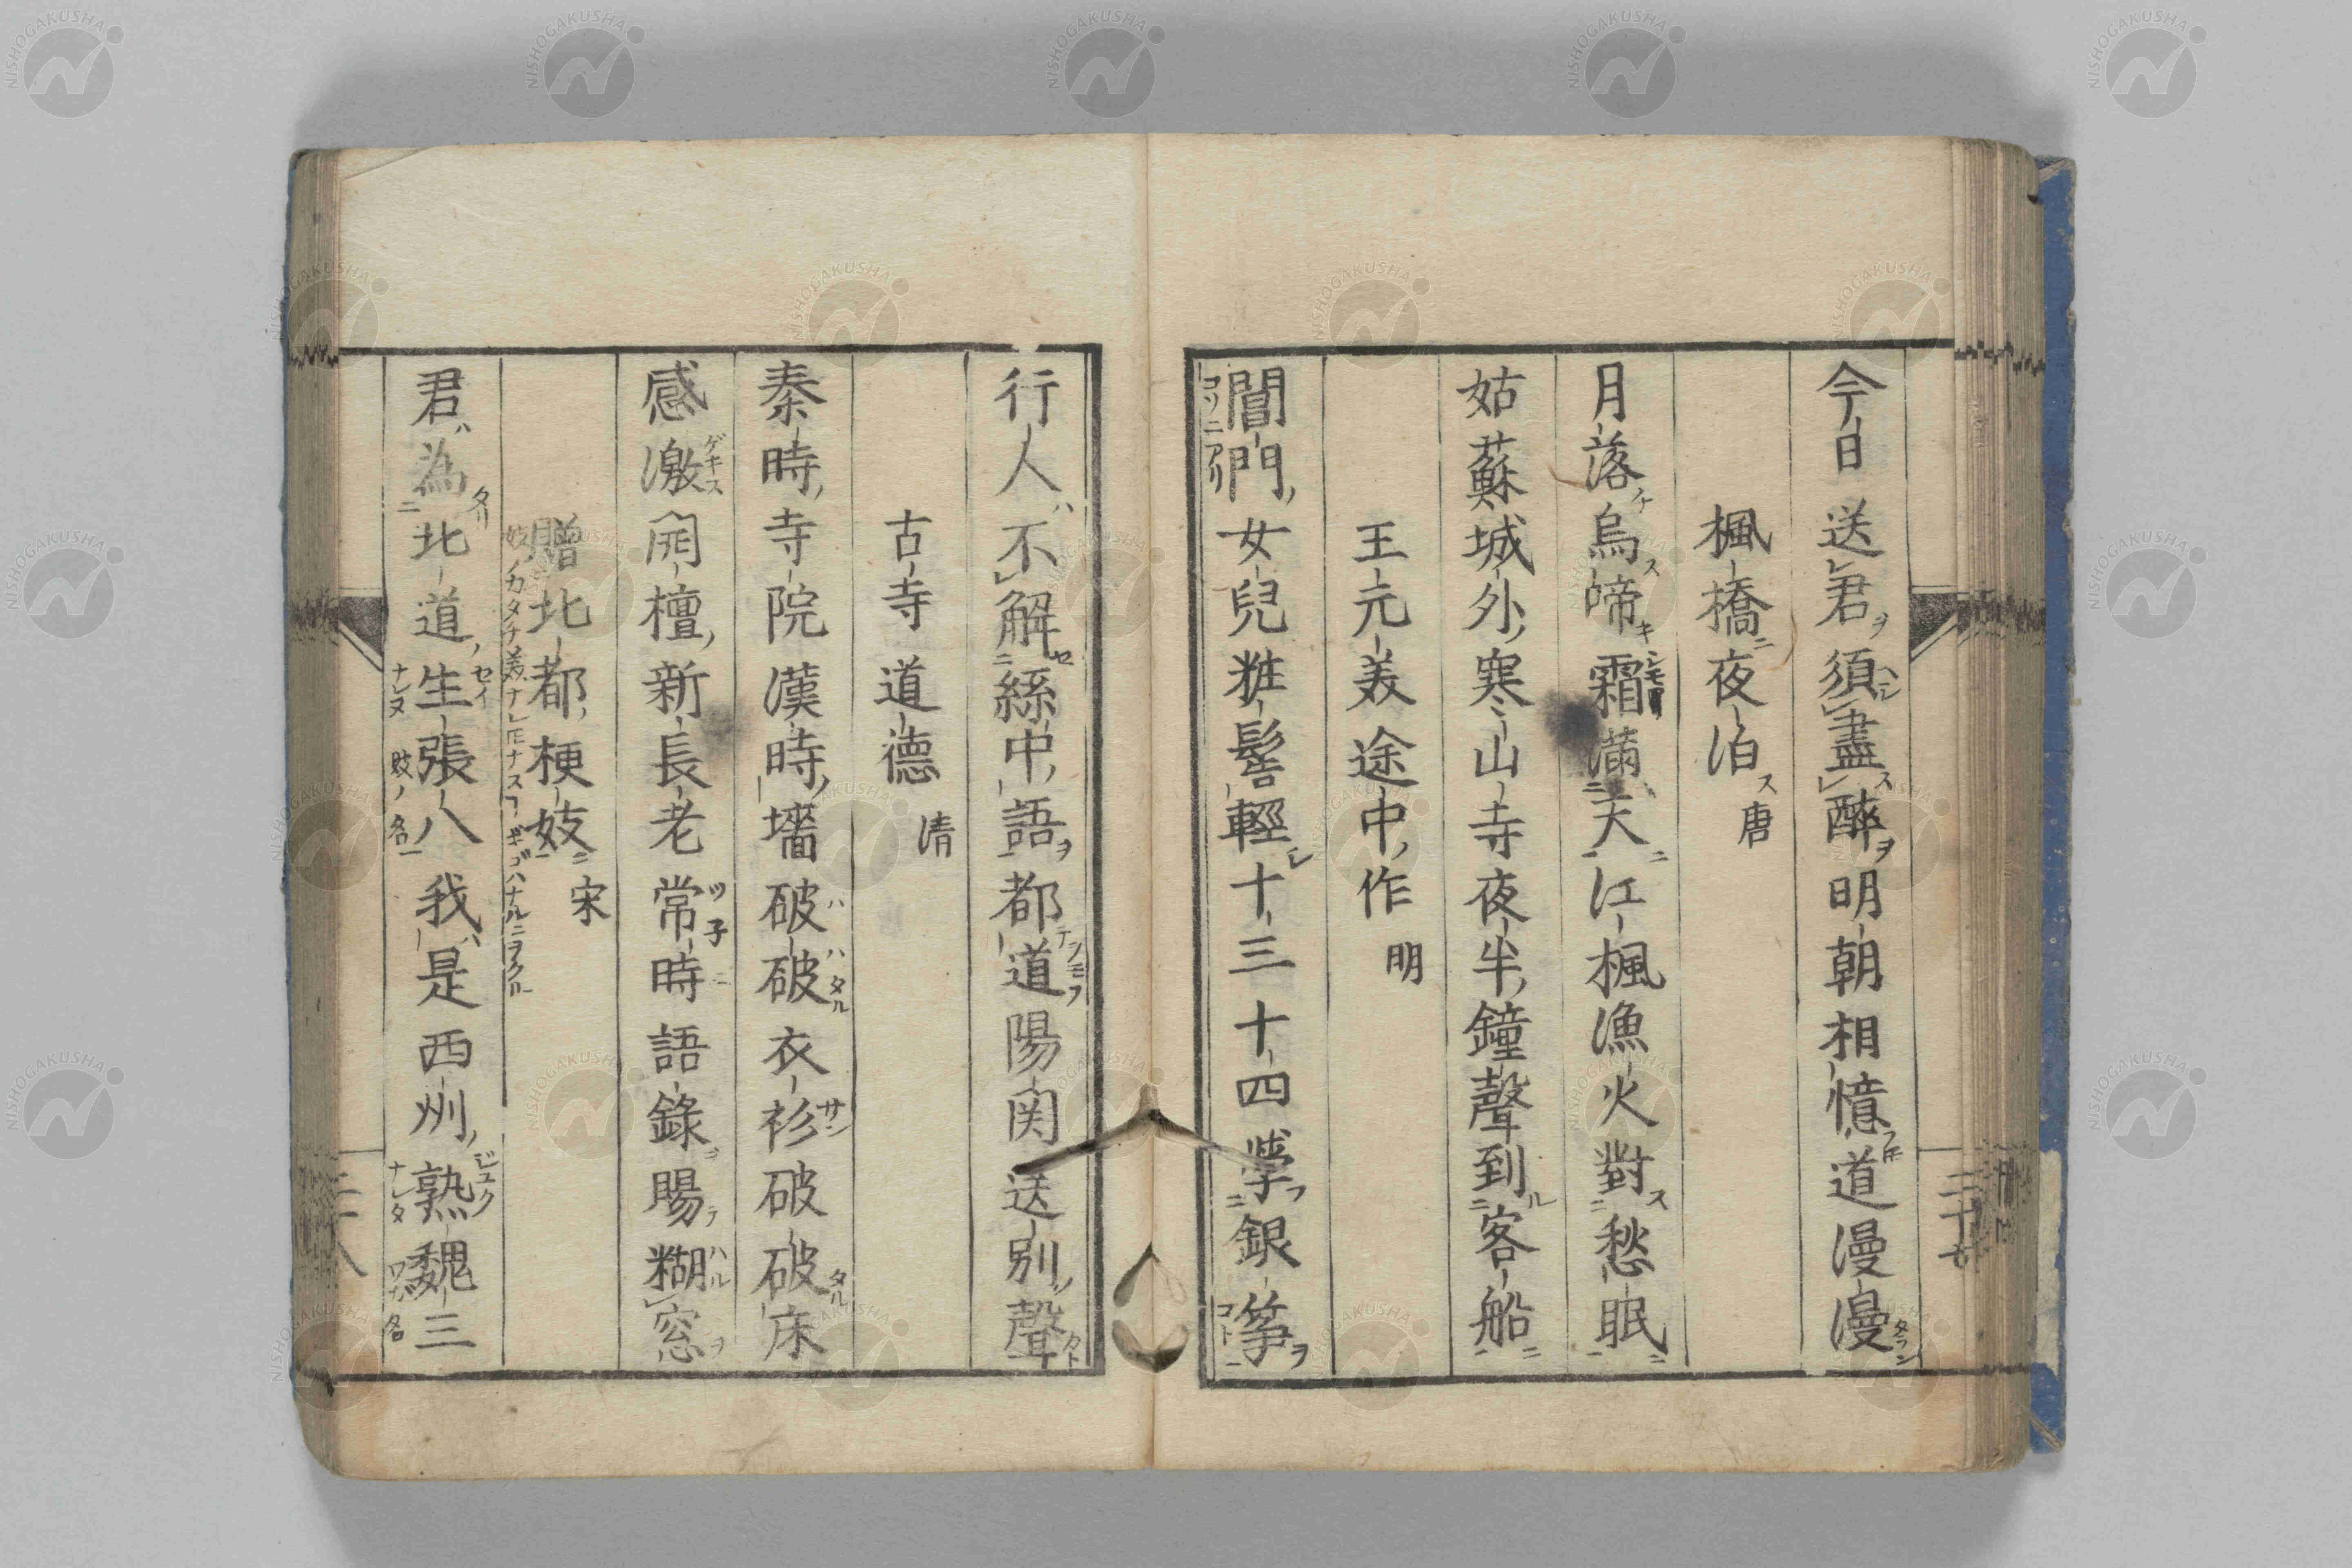 今日送君須盡醉明朝相憶道漫漫
楓橋夜泊 唐
月落烏啼霜滿天江楓漁火對愁眠
姑蘇城外寒山寺夜半鐘聲到客船
王元美途中作 明
閶門女兒粧髻輕十三十四學銀箏
行人不解絲中語都道陽関送別聲
古寺道德 清
秦時寺院漢時墻破破衣衫破破床
感激開檀新長老常時語錄賜糊窓
贈北都梗妓 宋
妓ノカタチ美ナレ𪜈ナスヿギゴハナルニヲクル
君為北道生張八我是西州熟魏三